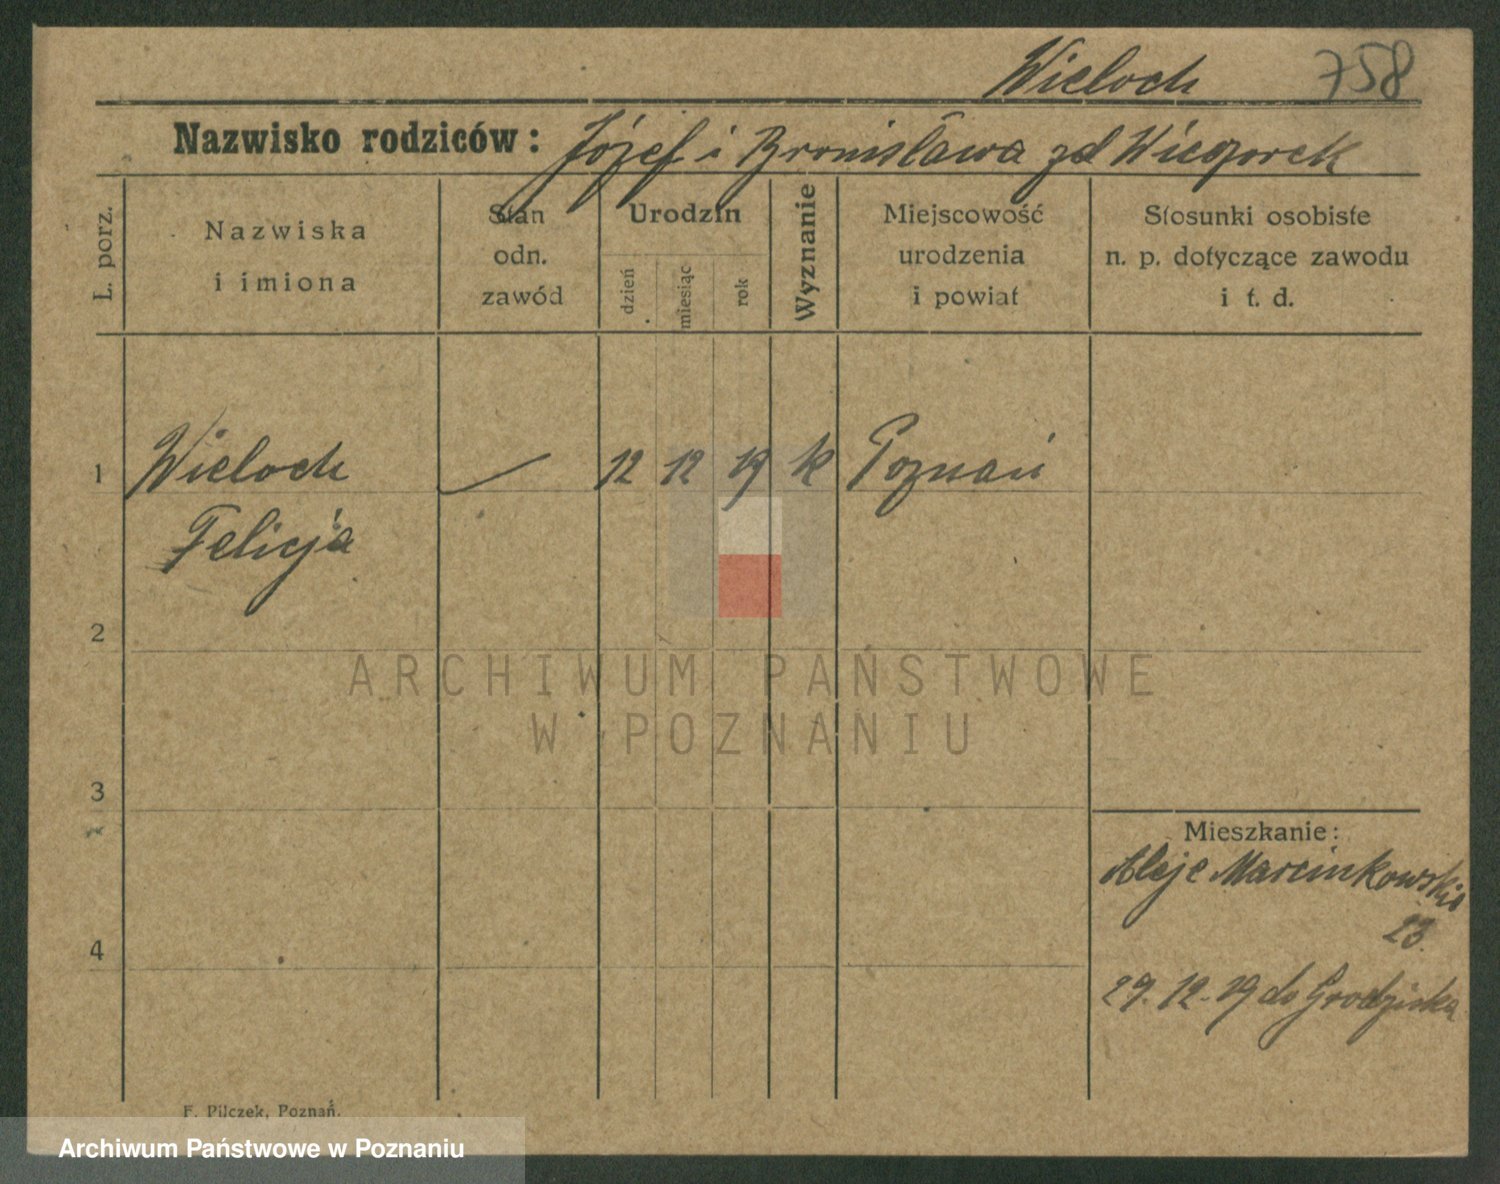 Wieloch 758
Nazwisko rodziców: Józef i Bronisława zd Wieczorek
L. porz.
Nazwiska
i imiona
Stan
odn.
zawód
Urodzin
dzień
miesiąc
rok
Wyznanie
Miejscowość
urodzenia
i powiat
Stosunki osobiste
n. p. dotyczące zawodu
i t. d.
1 Wieloch 12 12 19 k Poznań
Felicja
2
3
4
Mieszkanie:
Aleje Marcinkowskie
23.
29.12.19 do Grodziska
F. Pilczek, Poznań.
ARCHIWUM PAŃSTWOWE
W POZNANIU
Archiwum Państwowe w Poznaniu